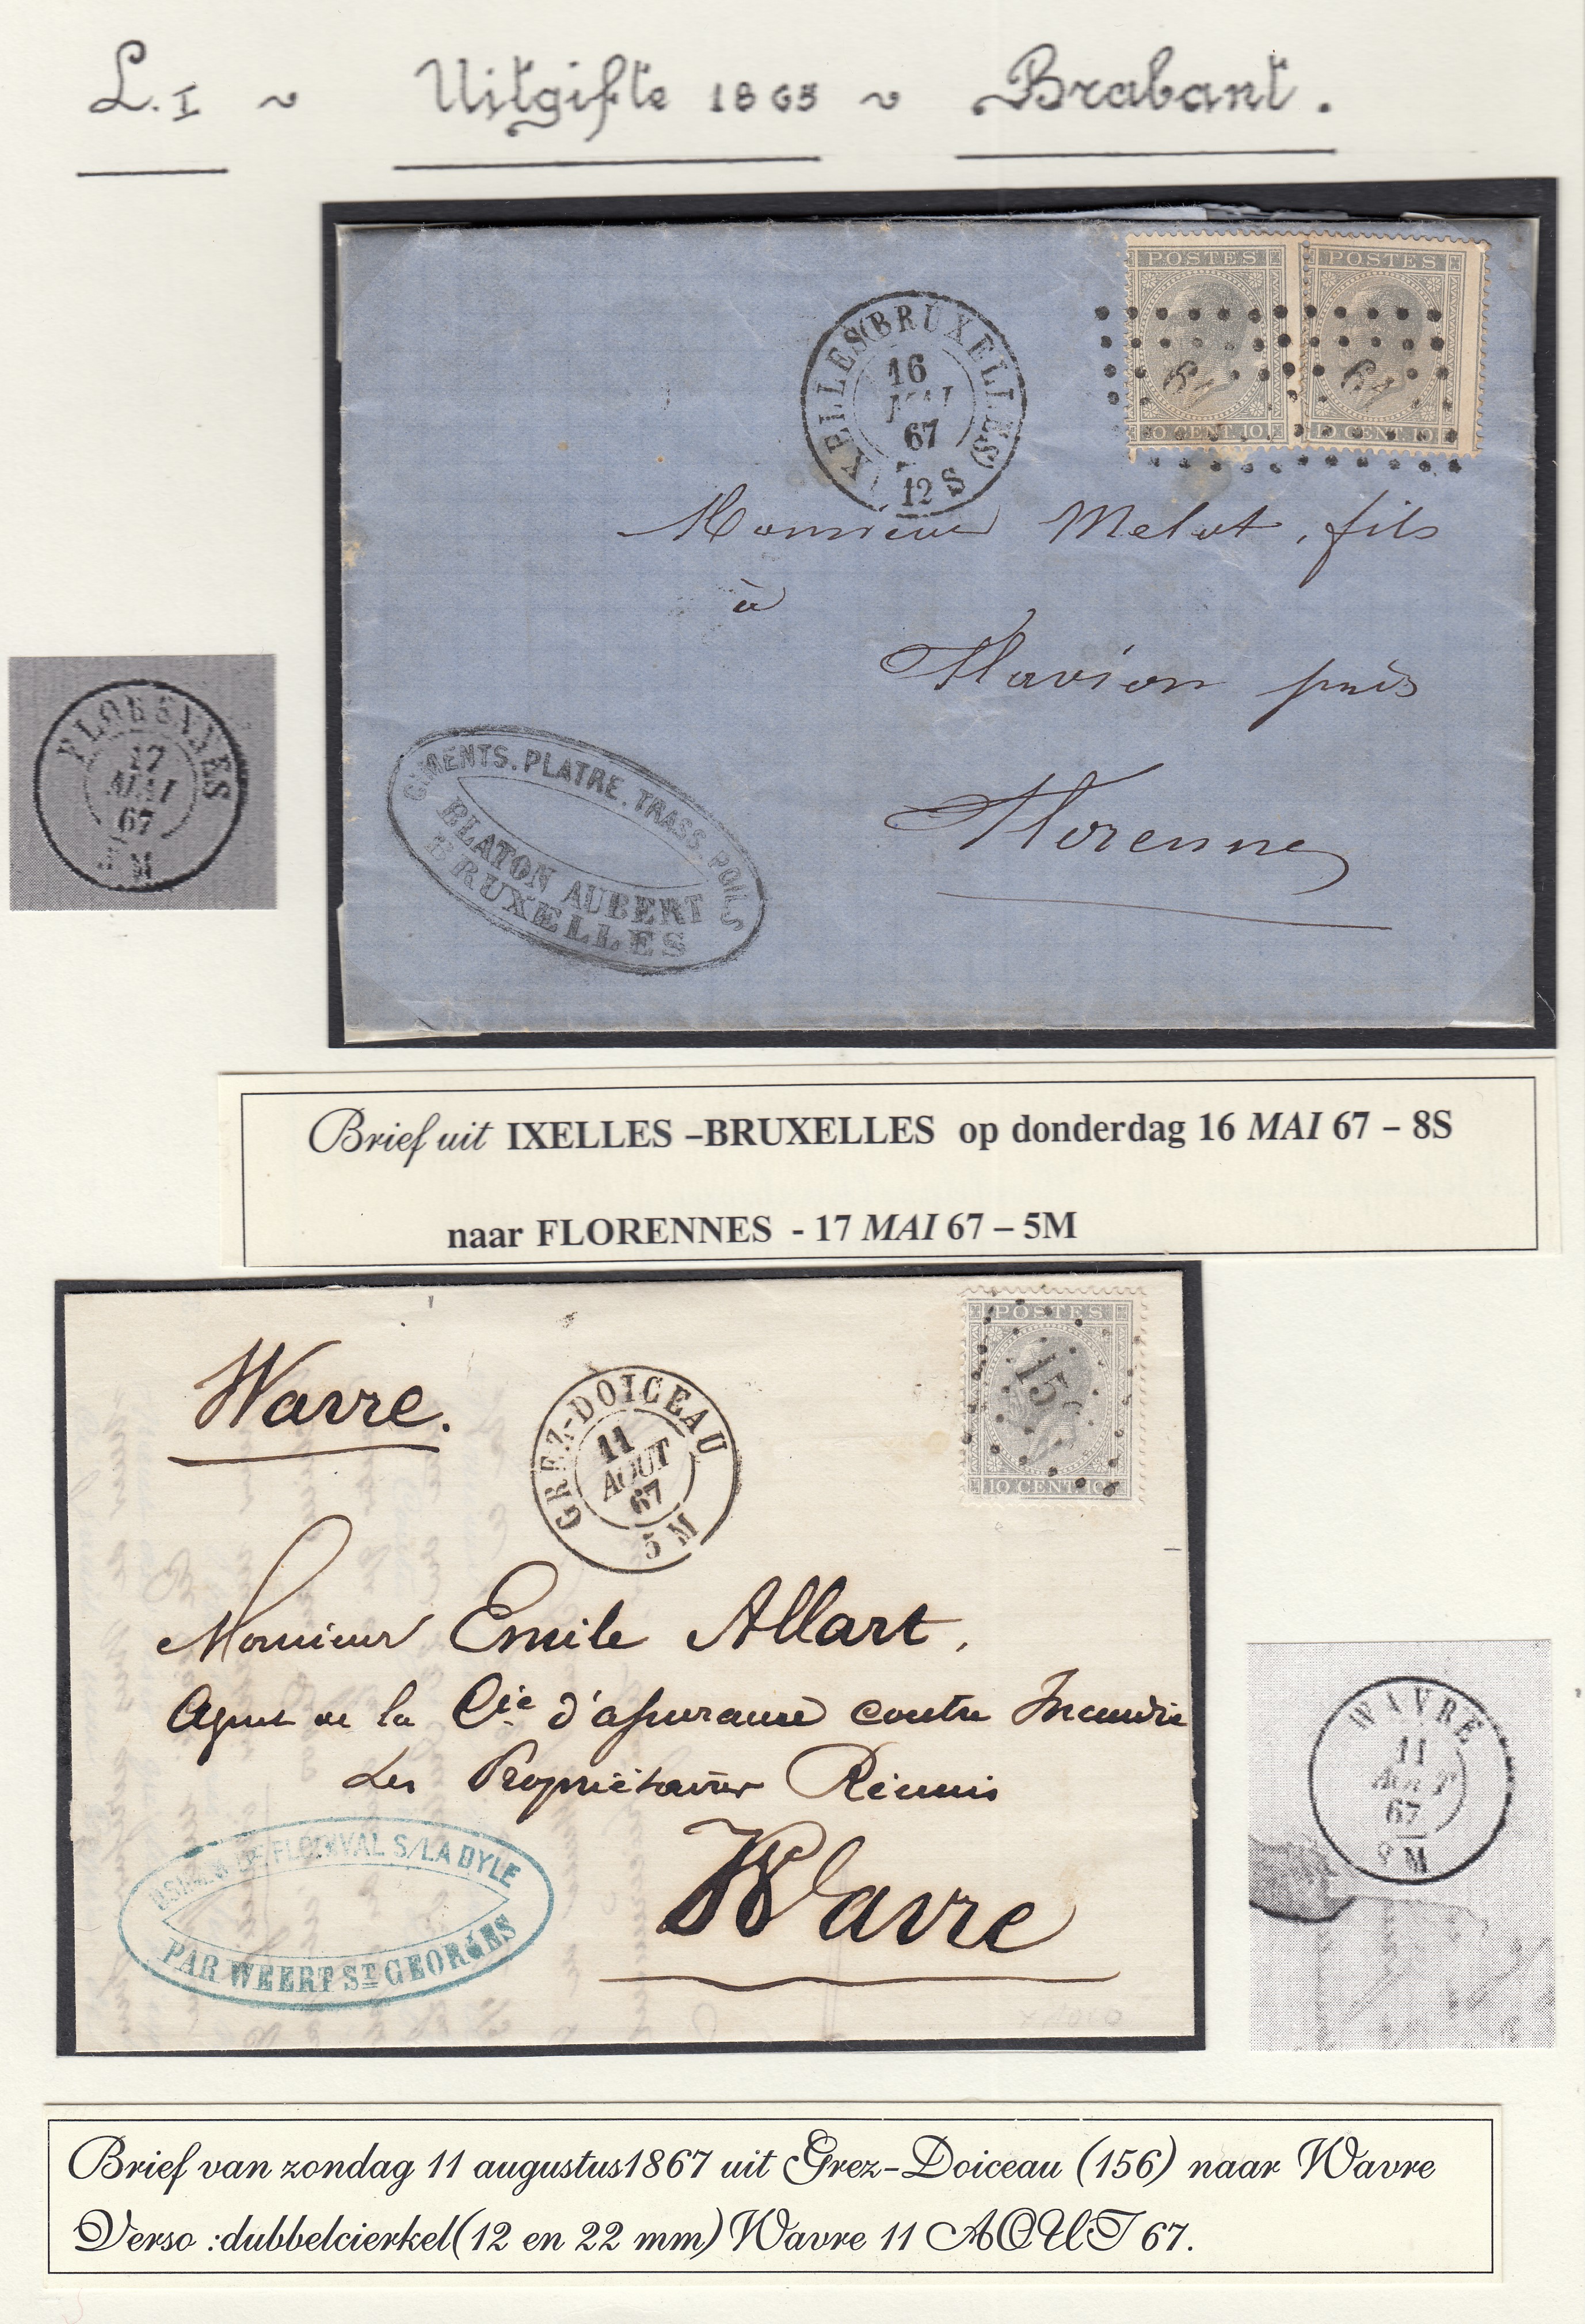 L.I ~ Uitgifte 1865 ~ Brabant.
POSTES
POSTES
10 CENT. 10
10 CENT. 10
XELLES (BRUXELLES)
16
MAI
67
12 S
Monsieur Melot, fils
à
Flavion près
Florennes
FLORENNES
17
MAI
67
5 M
CIMENTS. PLATRE. TRASS. POILS
BLATON AUBERT
BRUXELLES
Brief uit IXELLES –BRUXELLES op donderdag 16 MAI 67 – 8S
naar FLORENNES - 17 MAI 67 – 5M
POSTES
156
10 CENT. 10
Wavre.
GREZ-DOICEAU
11
AOUT
67
5 M
Monsieur Emile Allart,
Agent de la Cie d'assurance contre Incendie
Les Propriétaires Réunis
Wavre
USINES DE FLORIVAL S/LA DYLE
PAR WEERT ST GEORGES
WAVRE
11
AOUT
67
9 M
Brief van zondag 11 augustus1867 uit Grez-Doiceau (156) naar Wavre
Verso :dubbelcierkel(12 en 22 mm) Wavre 11 AOUT 67.